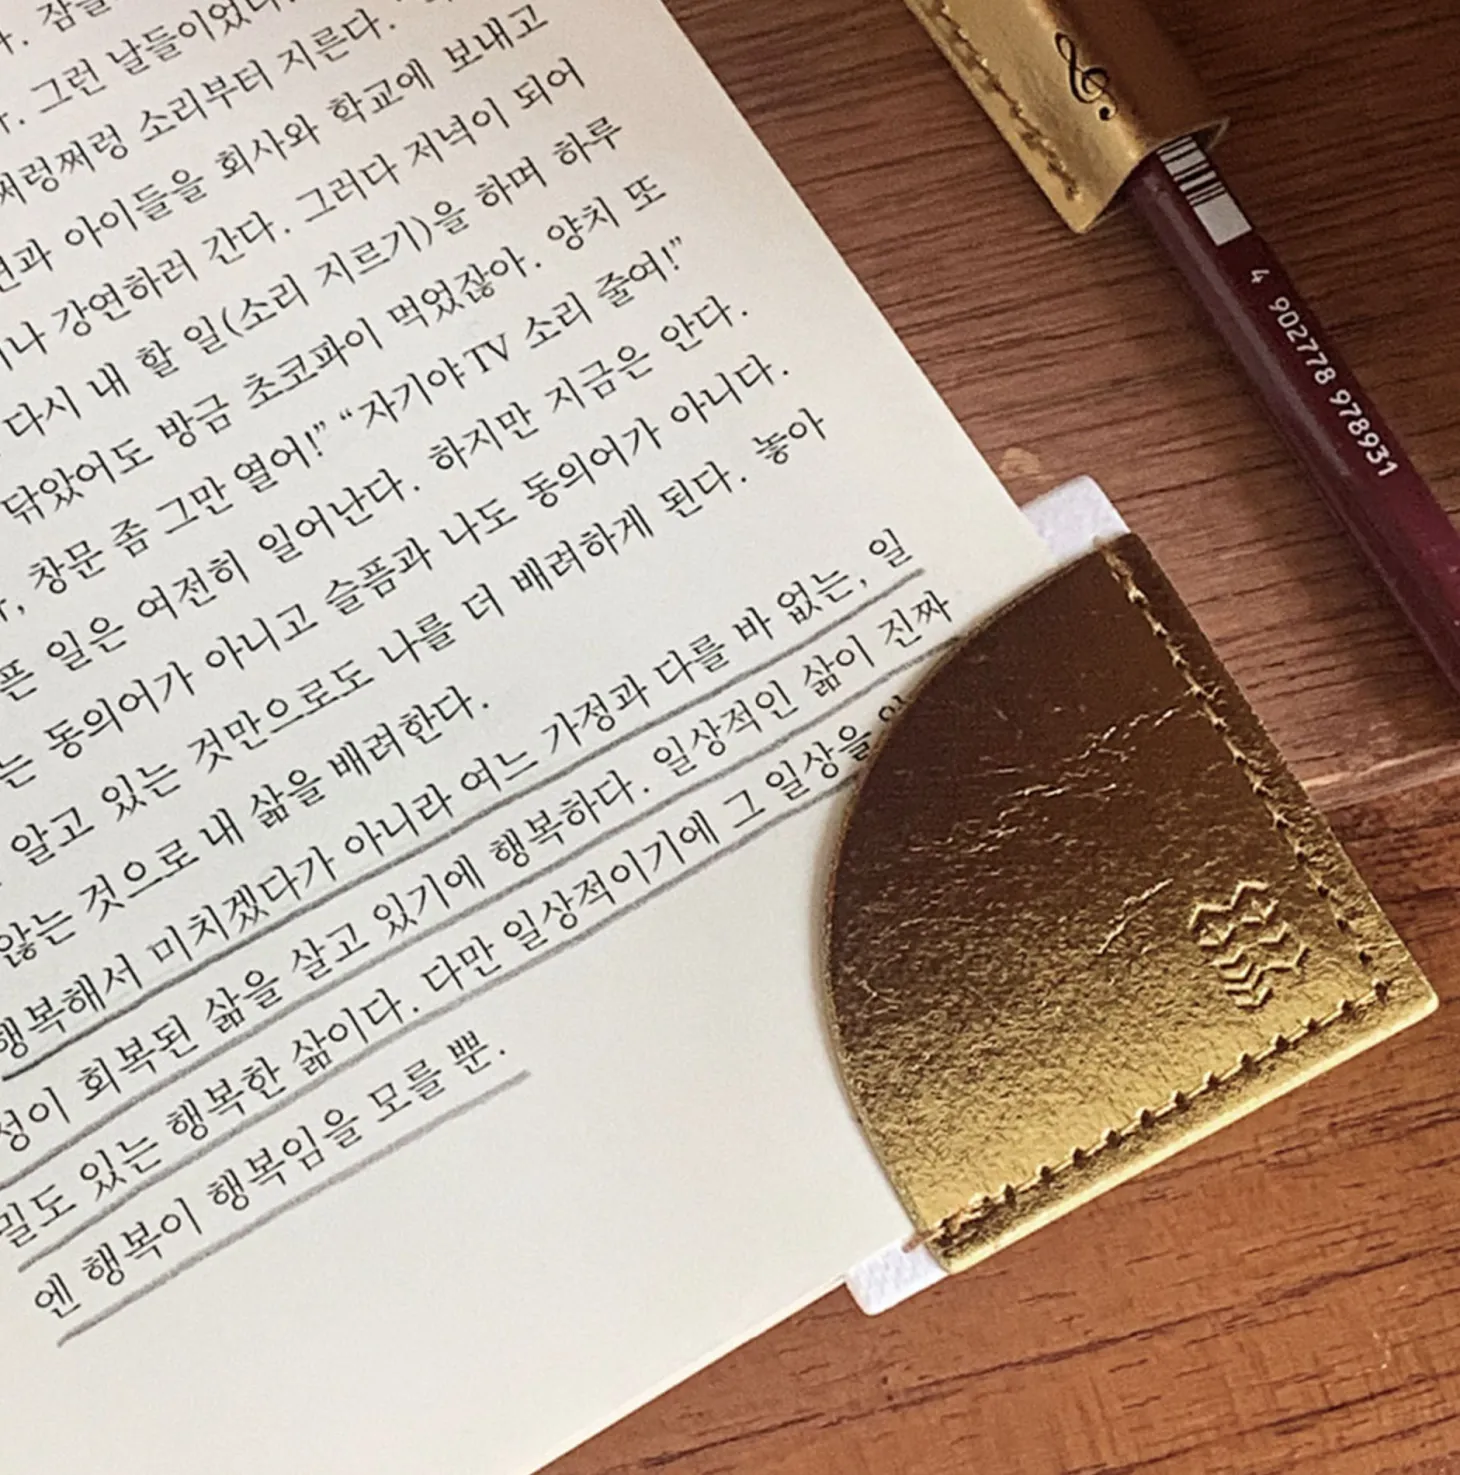 그런 날들이었
쩌렁쩌렁 소리부터 지른다.
아이들을 회사와 학교에 보내고
강연하러 간다. 그러다 저녁이 되어
다시 내 할 일(소리 지르기)을 하며 하루
닦았어도 방금 초코파이 먹었잖아. 양치 또
창문 좀 그만 열어!” “자기야 TV 소리 줄여!”
일은 여전히 일어난다. 하지만 지금은 안다.
는 동의어가 아니고 슬픔과 나도 동의어가 아니다.
알고 있는 것만으로도 나를 더 배려하게 된다. 놓아
않는 것으로 내 삶을 배려한다.
행복해서 미치겠다가 아니라 여느 가정과 다를 바 없는, 일
성이 회복된 삶을 살고 있기에 행복하다. 일상적인 삶이 진짜
밀도 있는 행복한 삶이다. 다만 일상적이기에 그 일상을
엔 행복이 행복임을 모를 뿐.
4 902778 978931